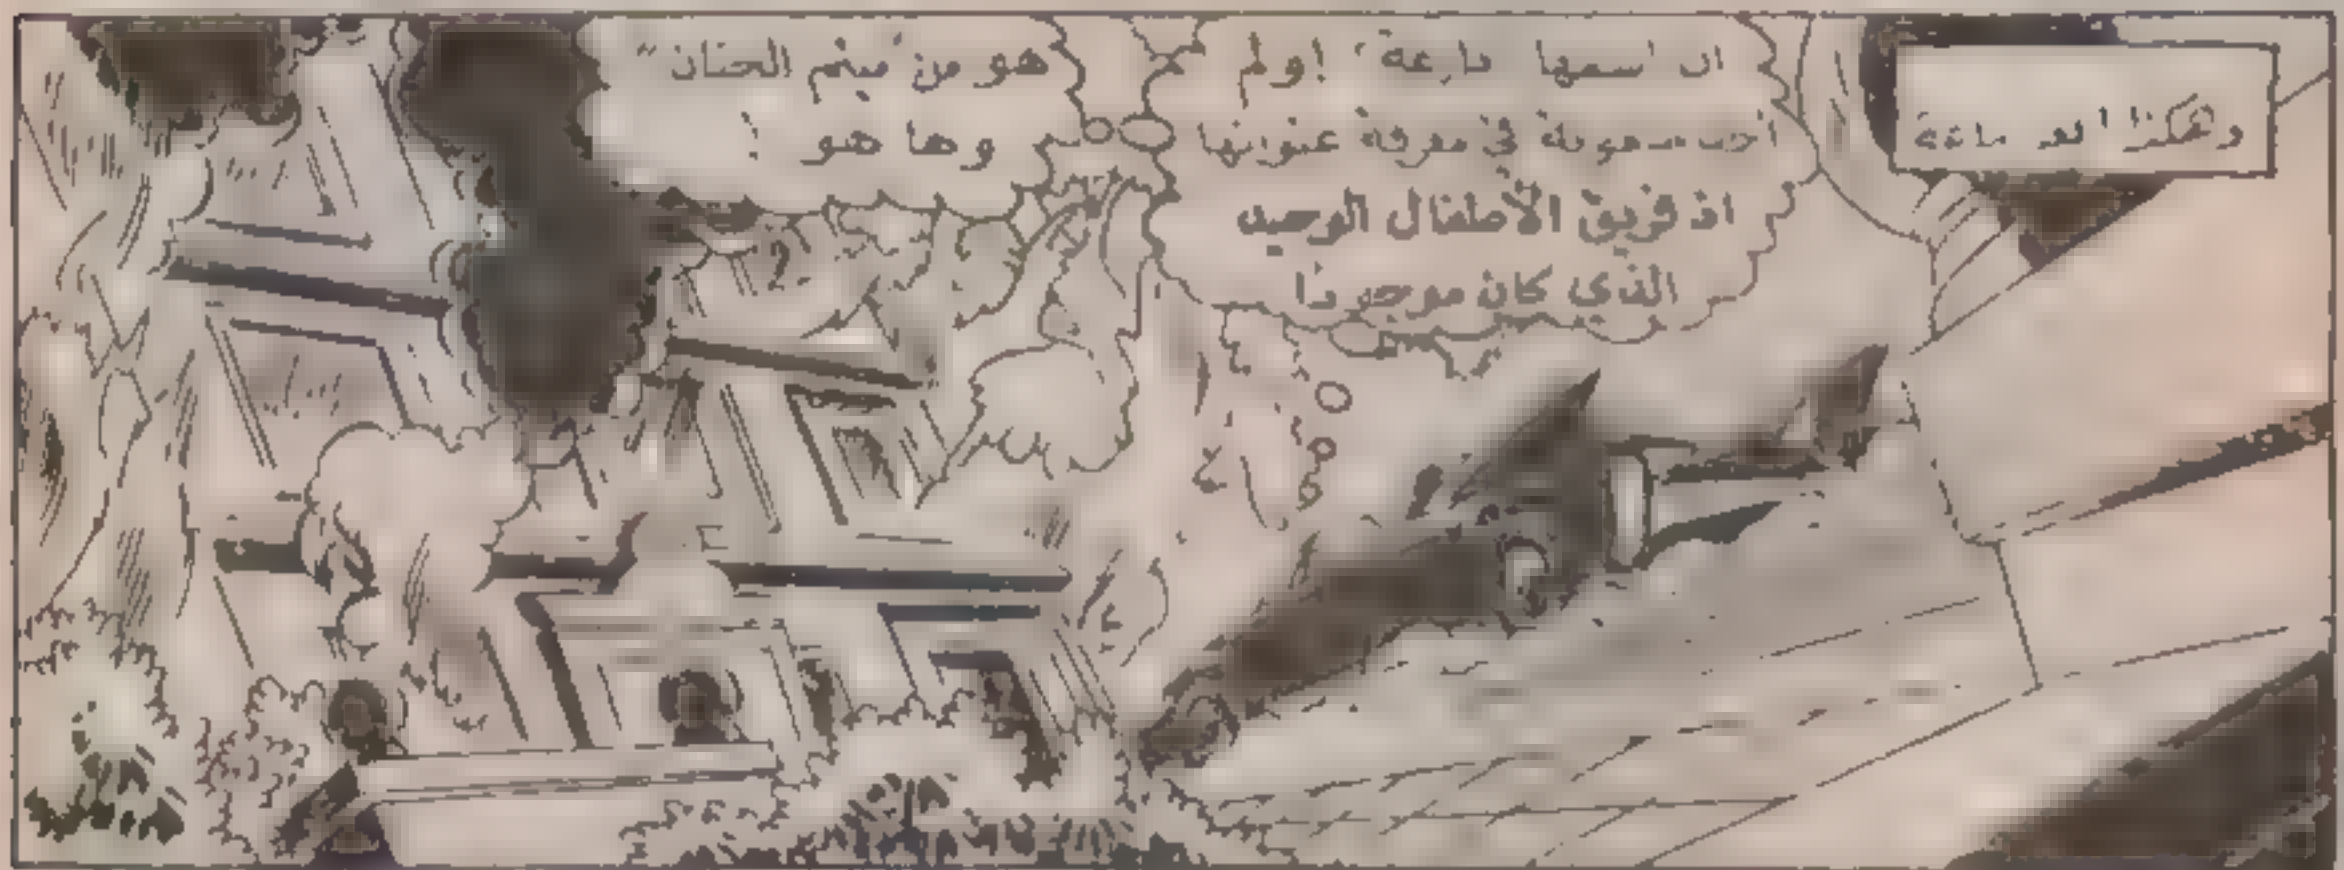 وهكذا بعد مدة
ان اسمها بارعة! ولم
اجد صعوبة في معرفة عنوانها
اذ فريق الأطفال الوحيد
الذي كان موجودا
هو من ميتم الحنان"
وها هو !